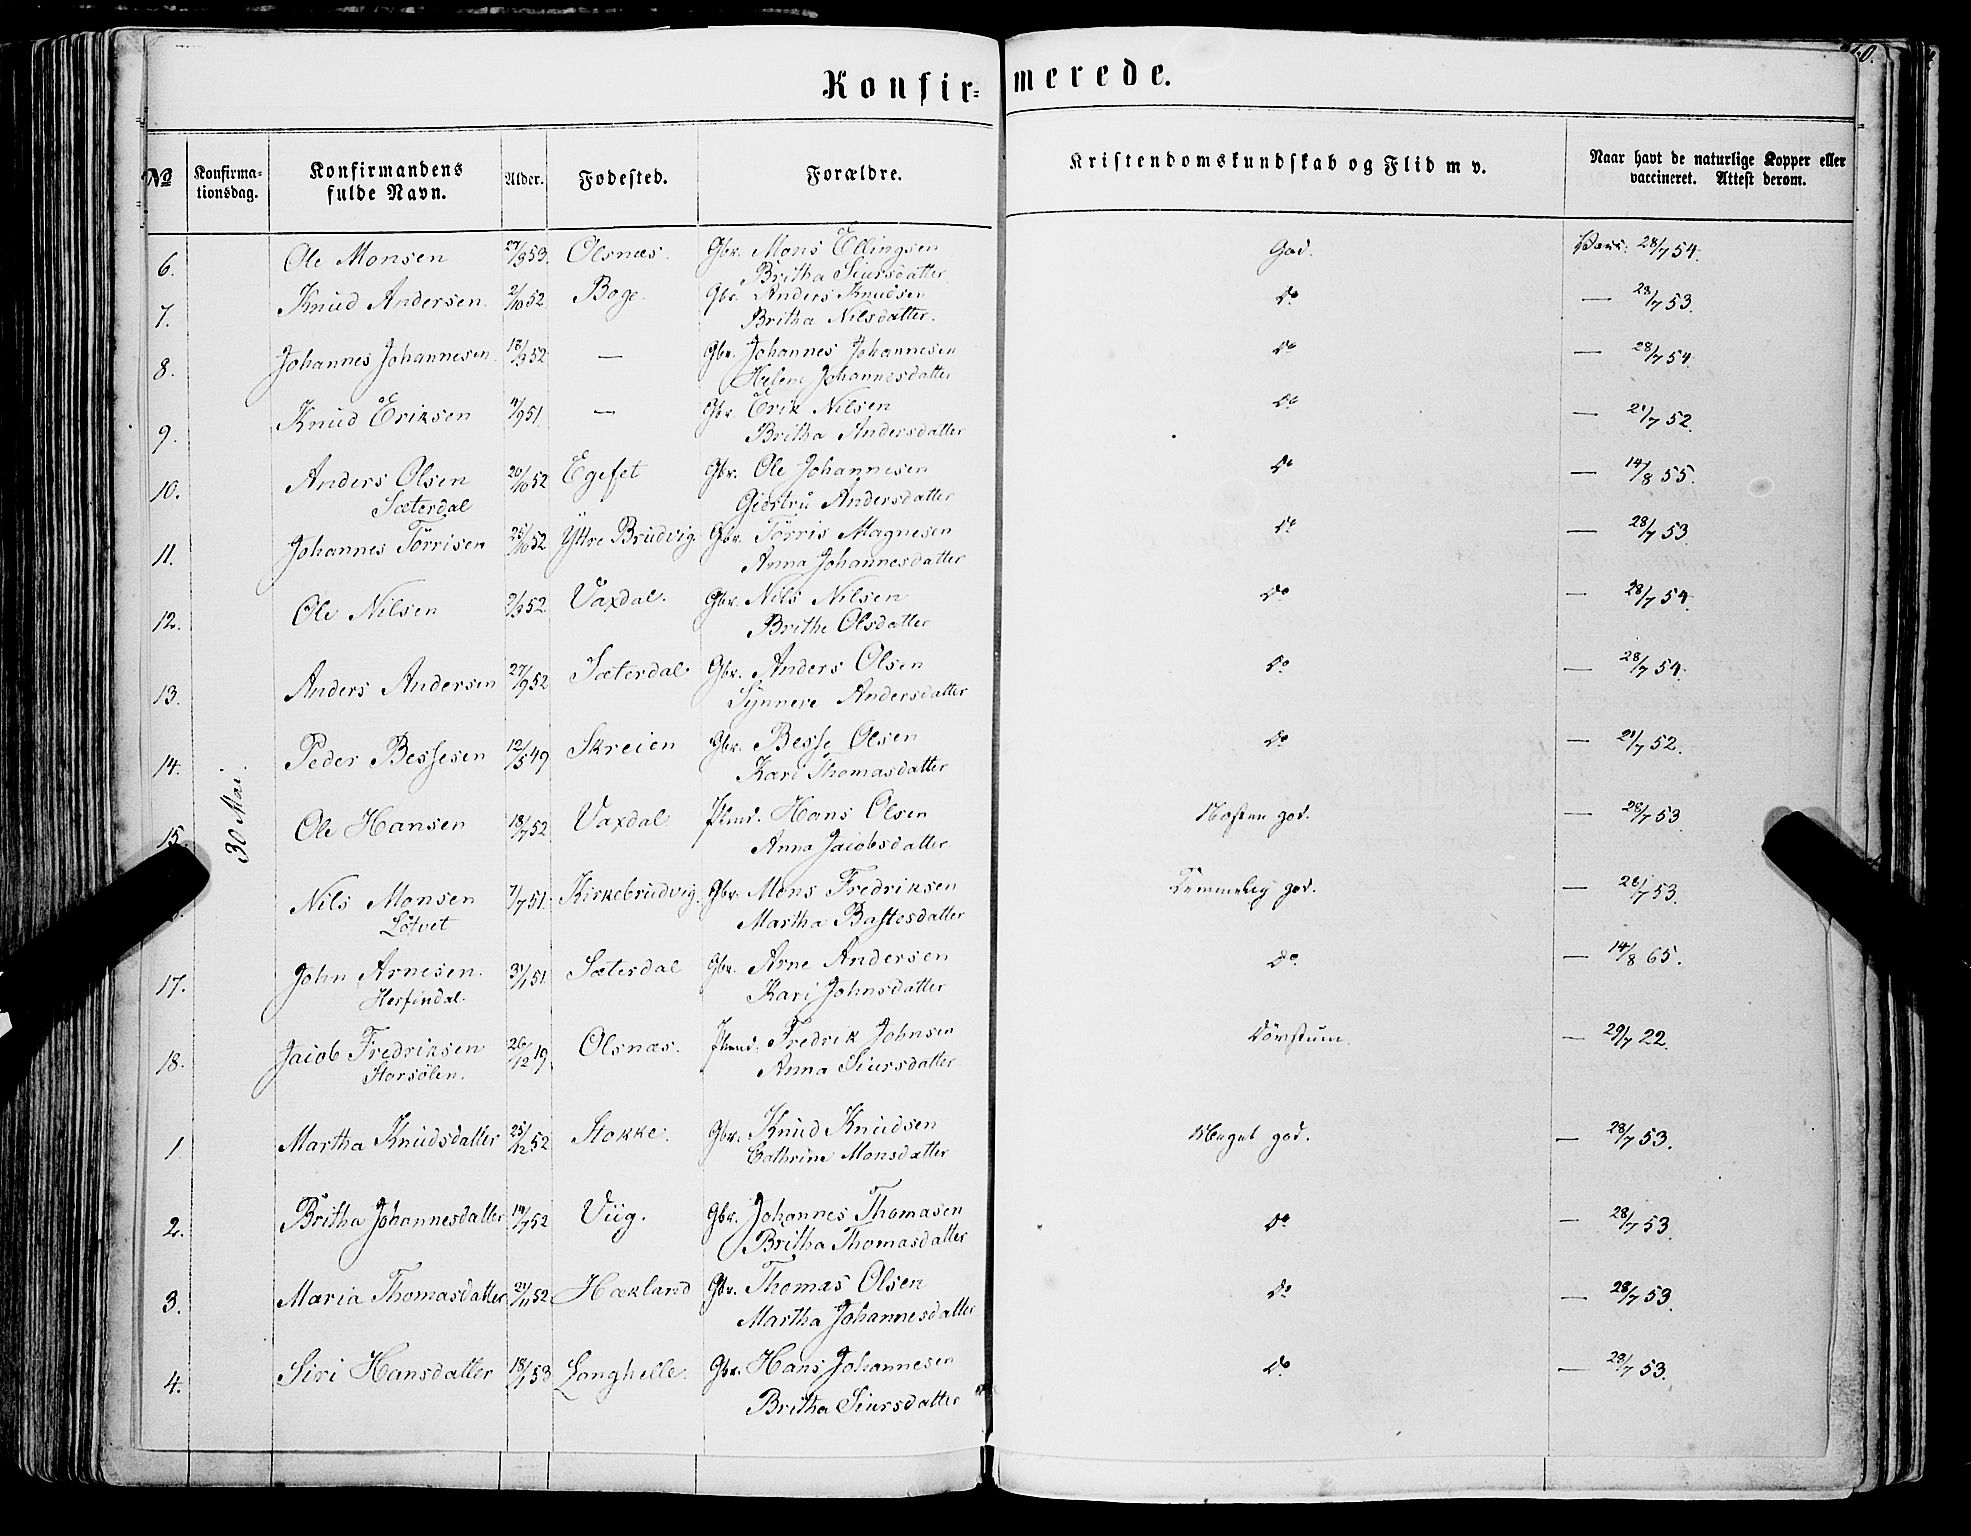 Konfir= merede.
No Konfirma-tionsdag. Konfirmandens fulde Navn. Alder. Fodested. Forældre. Kristendomskundskab og Flid m v. Naar havt de naturlige Kopper eller vaccineret. Attest derom.
6. Ole Monsen 27/9 53. Olsnæs. Gbr. Mons Ellingsen God. Vacc. 28/7 54.
Britha Siursdatter
7. Knud Andersen. 2/10 52 Boge. Gbr. Anders Knudsen Do — 28/7 53.
Britha Nilsdatter.
8. Johannes Johannesen 18/9 52 — Gbr. Johannes Johannesen Do — 28/7 54.
Helene Johannesdatter
9. Knud Eriksen 4/9 51 — Gbr. Erik Nilsen Do — 21/7 52.
Britha Andersdatter
10. Anders Olsen 20/10 52 Egefet Gbr. Ole Johannesen Do — 14/8 55.
Sæterdal Giertru Andersdatter
11. Johannes Törrisen 25/10 52 Yttre Brudvig Gbr. Törris Magnesen Do — 28/7 53.
Anna Johannesdatter
12. Ole Nilsen 52 Vaxdal. Gbr. Nils Nilsen Do — 28/7 54.
Brithe Olsdatter
13. Anders Andersen 27/9 52 Sæterdal Gbr. Anders Olsen Do — 28/7 54.
Synneve Andersdatter
14. Peder Bessesen 12/5 49 Skreien Gbr. Besse Olsen Do — 21/7 52.
Kari Thomasdatter
30 Mai.
15. Ole Hansen 18/7 52 Vaxdal Hans Olsen Næsten god. — 28/7 53.
Anna Jacobsdatter
Nils Monsen 7/7 51. Kirkebrudvig. Gbr. Mons Fredriksen Temmelig god. — 28/7 53.
Lötvet Martha Bastesdatter
17. John Arnesen. 51 Sæterdal Gbr. Arne Andersen Do — 14/8 65.
Herfindal. Kari Johnsdatter
18. Jacob Fredriksen 26/12 19. Olsnæs. Fredrik Johnsen Dövstum. — 29/7 22.
Storsölen. Anna Siursdatter
1 Martha Knudsdatter 25/12 52 Stokke. Gbr. Knud Knudsen Meget god. — 28/7 53.
Cathrine Monsdatter
2. Britha Johannesdatter 52 Viig. Gbr. Johannes Thomasen Do — 28/7 53.
Britha Thomasdatter
3. Maria Thomasdatter 21/11 52 Hækland Gbr. Thomas Olsen Do — 28/7 53.
Martha Johannesdatter
4. Siri Hansdatter 18/1 53 Langhelle. Gbr. Hans Johannesen Do — 28/7 53.
Britha Siursdatter